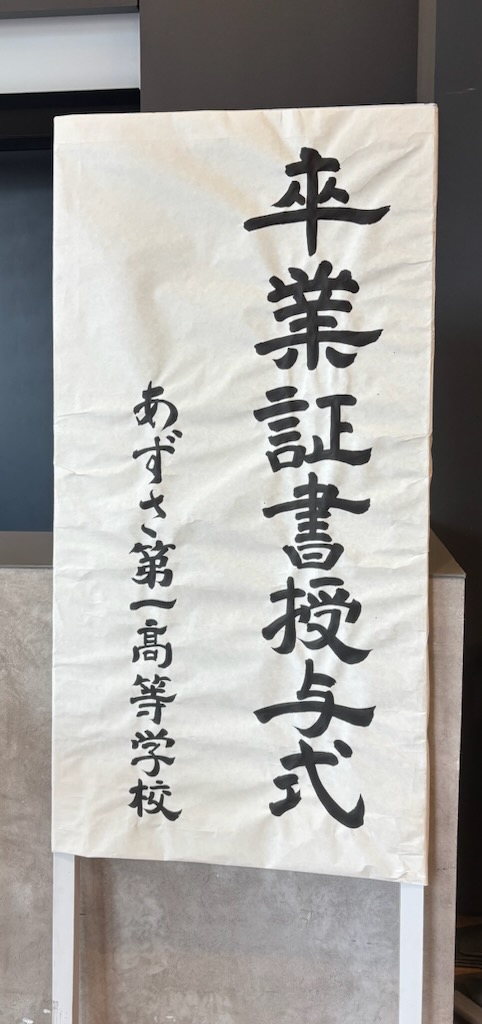 卒業証書授与式
あずさ第一高等学校